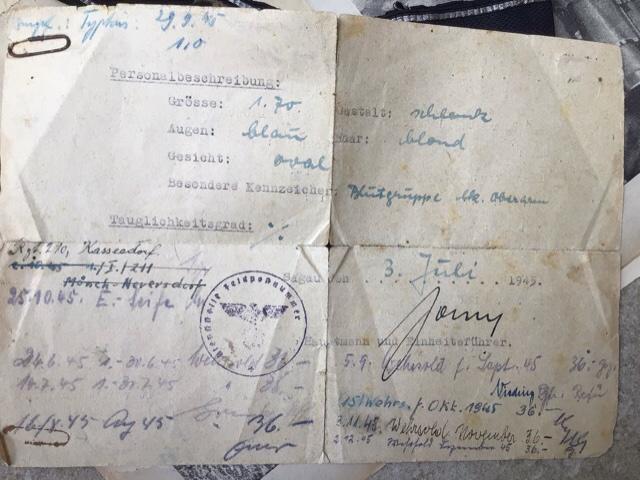 Typhus: 29.9.45
1,0
Personalbeschreibung:
Grösse: 1.70 Gestalt: schlank
Augen: blau Haar: blond
Gesicht: oval
Besondere Kennzeichen: Blutgruppe lk. Oberarm
Tauglichkeitsgrad: %
Kassedorf
1./I./211
Mönch-Neversdorf
25.10.45 E.- Seife
Dienststelle Feldpostnummer
Sagau den 3. Juli 1945.
Hauptmann und Einheitsführer.
24.6.45 1.-30.6.45 Wehrsold 36.-
5.9. Wehrsold f. Sept. 45 36.-
14.7.45 1.-30.7.45 " 36.-
15. Wehrs. f. Okt. 1945 36.-
Aug 45 36.-
3.11.45 Wehrsold November 36.-
2.12.45 Wehrsold Dezember 45 36.-